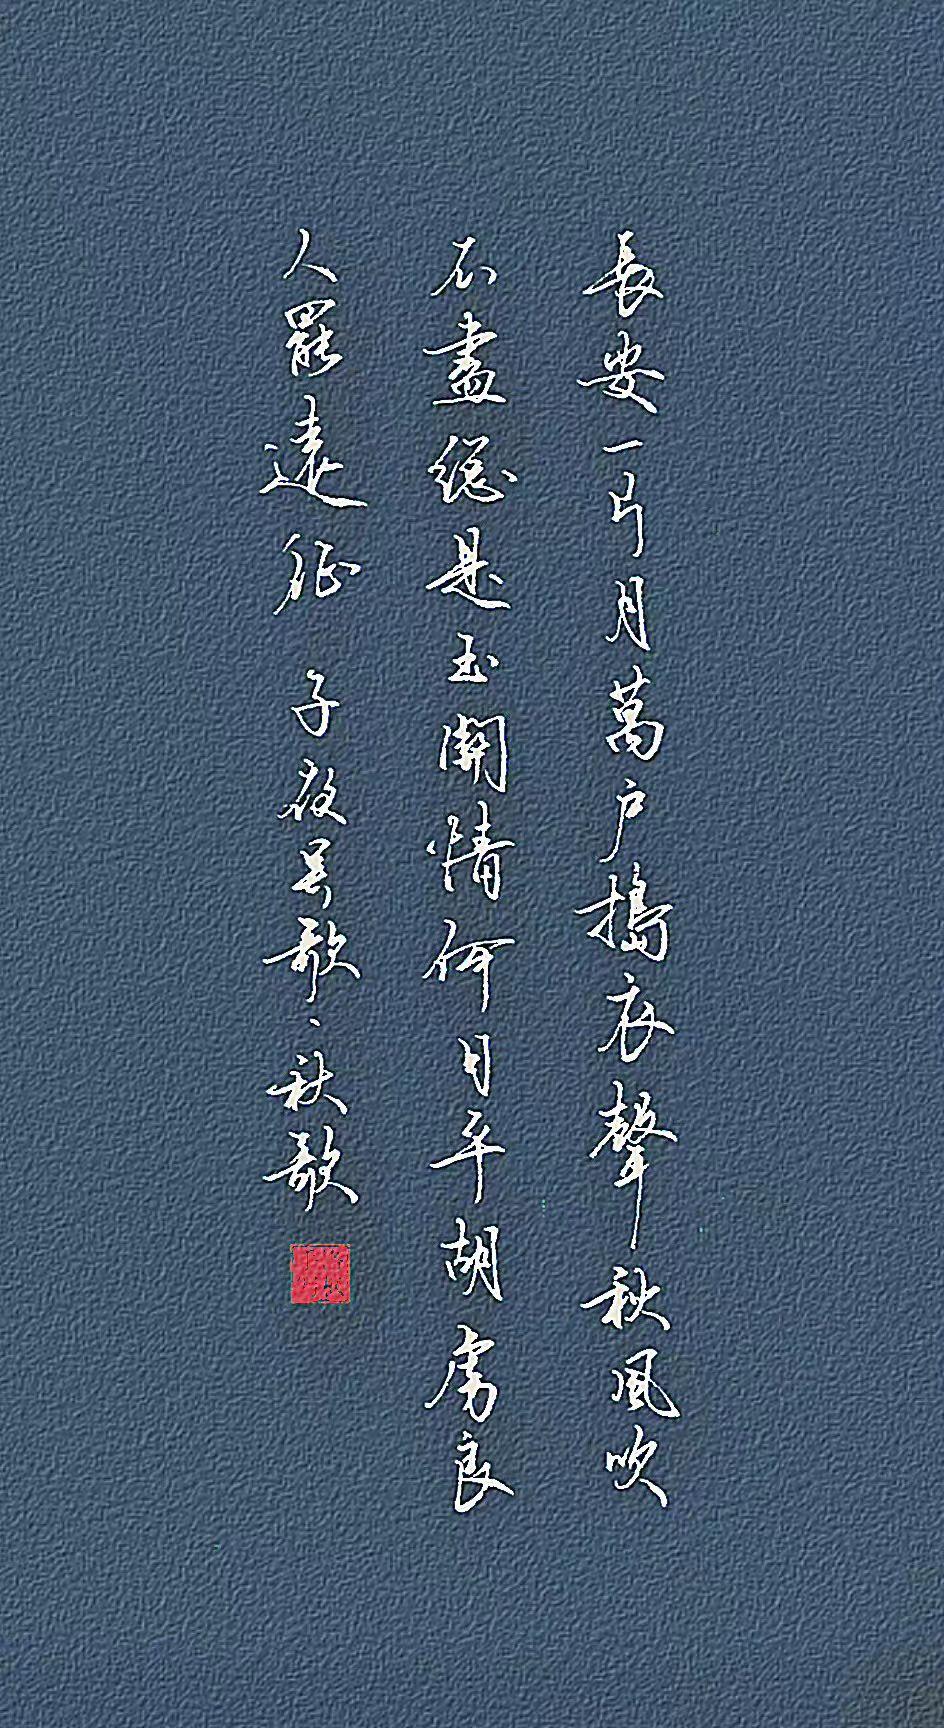 長安一片月萬戶搗衣聲秋風吹
不盡總是玉關情何日平胡虜良
人罷遠征 子夜吳歌·秋歌